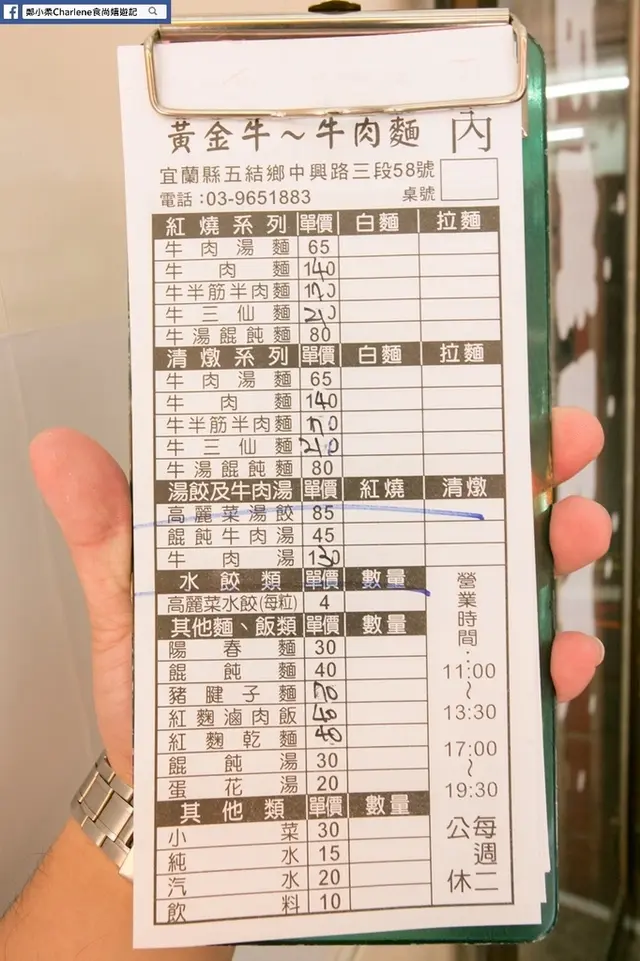 鄭小柔Charlene食尚嬉遊記
黃金牛～牛肉麵 內
宜蘭縣五結鄉中興路三段58號
電話:03-9651883 桌號
紅燒系列 單價 白麵 拉麵
牛肉湯麵 65
牛肉麵 140
牛半筋半肉麵 170
牛三仙麵 210
牛湯餛飩麵 80
清燉系列 單價 白麵 拉麵
牛肉湯麵 65
牛肉麵 140
牛半筋半肉麵 170
牛三仙麵 210
牛湯餛飩麵 80
湯餃及牛肉湯 單價 紅燒 清燉
高麗菜湯餃 85
餛飩牛肉湯 45
牛肉湯 130
水餃類 單價 數量
高麗菜水餃(每粒) 4
其他麵、飯類 單價 數量
陽春麵 30
餛飩麵 40
豬腱子麵 70
紅麴滷肉飯 40
紅麴乾麵 40
餛飩湯 30
蛋花湯 20
其他類 單價 數量
小菜 30
純水 15
汽水 20
飲料 10
營業時間：
11:00
～
13:30
17:00
～
19:30
每週二
公休